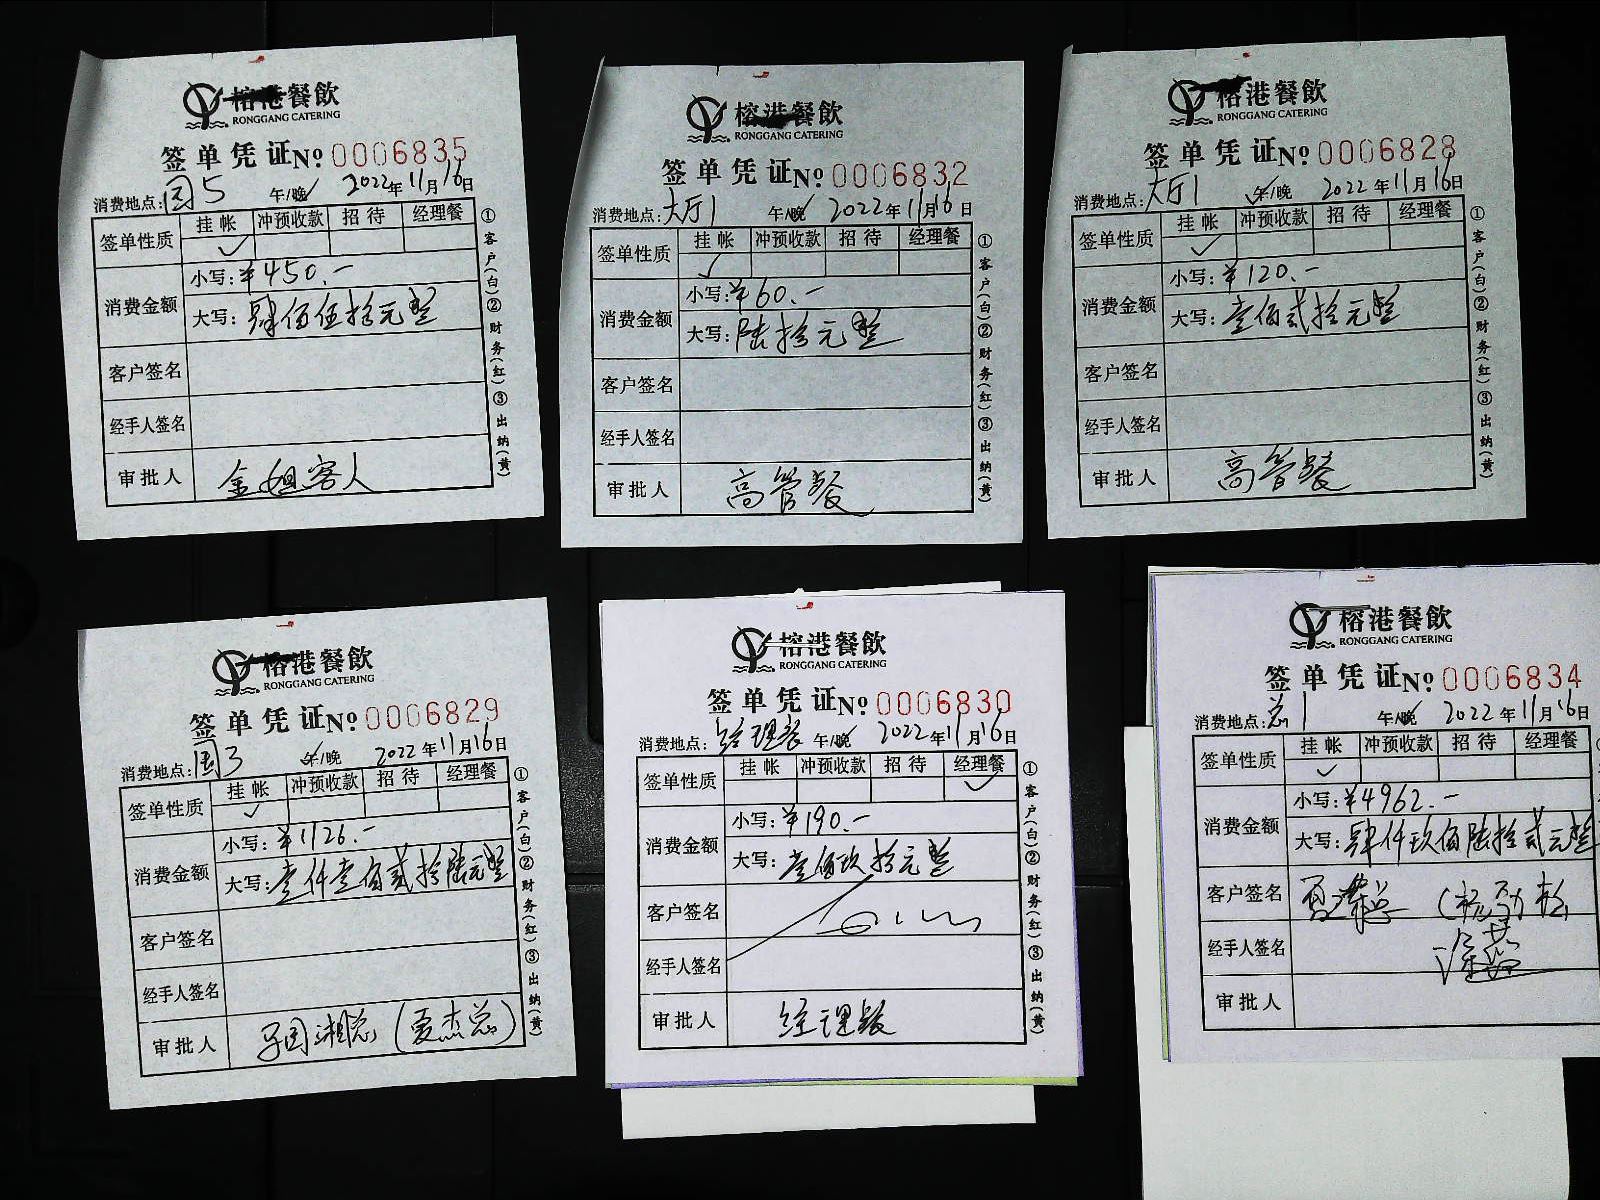 榕港餐飲
RONGGANG CATERING
签单凭证 No 0006835
消费地点: 园5 午/晚 2022年11月16日
签单性质 挂帐 冲预收款 招待 经理餐
✓
消费金额
小写: ¥450.-
大写: 肆佰伍拾元整
客户签名
经手人签名
审批人 金姐客人
①客户(白)②财务(红)③出纳(黄)
榕港餐飲
RONGGANG CATERING
签单凭证 No 0006832
消费地点: 大厅1 午/晚 2022年11月16日
签单性质 挂帐 冲预收款 招待 经理餐
✓
消费金额
小写: ¥60.-
大写: 陆拾元整
客户签名
经手人签名
审批人 高管餐
①客户(白)②财务(红)③出纳(黄)
榕港餐飲
RONGGANG CATERING
签单凭证 No 0006828
消费地点: 大厅1 午/晚 2022年11月16日
签单性质 挂帐 冲预收款 招待 经理餐
✓
消费金额
小写: ¥120.-
大写: 壹佰贰拾元整
客户签名
经手人签名
审批人 高管餐
①客户(白)②财务(红)③出纳(黄)
榕港餐飲
RONGGANG CATERING
签单凭证 No 0006829
消费地点: 园3 午/晚 2022年11月16日
签单性质 挂帐 冲预收款 招待 经理餐
✓
消费金额
小写: ¥1126.-
大写: 壹仟壹佰贰拾陆元整
客户签名
经手人签名
审批人 国湘总 (夏杰总)
①客户(白)②财务(红)③出纳(黄)
榕港餐飲
RONGGANG CATERING
签单凭证 No 0006830
消费地点: 经理餐 午/晚 2022年11月16日
签单性质 挂帐 冲预收款 招待 经理餐
✓
消费金额
小写: ¥190.-
大写: 壹佰玖拾元整
客户签名
经手人签名
审批人 经理餐
①客户(白)②财务(红)③出纳(黄)
榕港餐飲
RONGGANG CATERING
签单凭证 No 0006834
消费地点: 总1 午/晚 2022年11月16日
签单性质 挂帐 冲预收款 招待 经理餐
✓
消费金额
小写: ¥4962.-
大写: 肆仟玖佰陆拾贰元整
客户签名
经手人签名
审批人